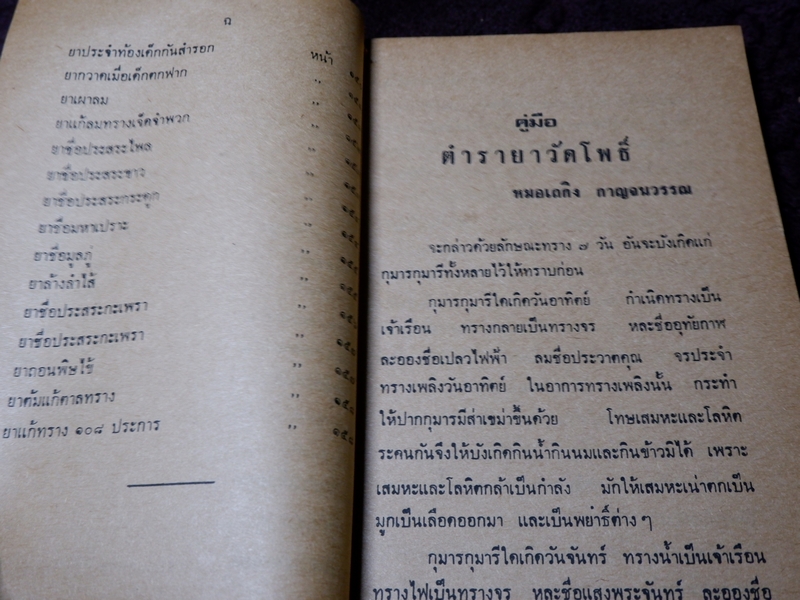 ฌ
หน้า
ยาประจำท้องเด็กกันสำรอก ๑๕
ยากวาดเมื่อเด็กตกฟาก " ๑๕
ยาเผาลม " ๑๕
ยาแก้ลมทรางเจ็ดจำพวก " ๑๕
ยาชื่อประสระไพล " ๑๕
ยาชื่อประสระขาว " ๑๕
ยาชื่อประสระกระดูก " ๑๕
ยาชื่อมหาเปราะ " ๑๕
ยาชื่อมูลภู่ " ๑๕
ยาล้างลำไส้ " ๑๕
ยาชื่อประสระกะเพรา " ๑๕
ยาชื่อประสระกะเพรา " ๑๕
ยาถอนพิษไข้ " ๑๕
ยาต้มแก้ตาลทราง " ๑๕
ยาแก้ทราง ๑๐๘ ประการ " ๑๕
คู่มือ
ตำรายาวัดโพธิ์
หมอเถกิง กาญจนวรรณ
จะกล่าวด้วยลักษณะทราง ๗ วัน อันจะบังเกิดแก่
กุมารกุมารีทั้งหลายไว้ให้ทราบก่อน
กุมารกุมารีใดเกิดวันอาทิตย์ กำเนิดทรางเป็น
เจ้าเรือน ทรางกลายเป็นทรางจร หละชื่ออุทัยกาฬ
ละอองชื่อเปลวไฟฟ้า ลมชื่อประวาตคุณ จรประจำ
ทรางเพลิงวันอาทิตย์ ในอาการทรางเพลิงนั้น กระทำ
ให้ปากกุมารมีส่าเขม่าขึ้นด้วย โทษเสมหะและโลหิต
ระคนกันจึงให้บังเกิดกินน้ำกินนมและกินข้าวมิได้ เพราะ
เสมหะและโลหิตกล้าเป็นกำลัง มักให้เสมหะเน่าตกเป็น
มูกเป็นเลือดออกมา และเป็นพยาธิ์ต่าง ๆ
กุมารกุมารีใดเกิดวันจันทร์ ทรางน้ำเป็นเจ้าเรือน
ทรางไฟเป็นทรางจร หละชื่อแสงพระจันทร์ ละอองชื่อ